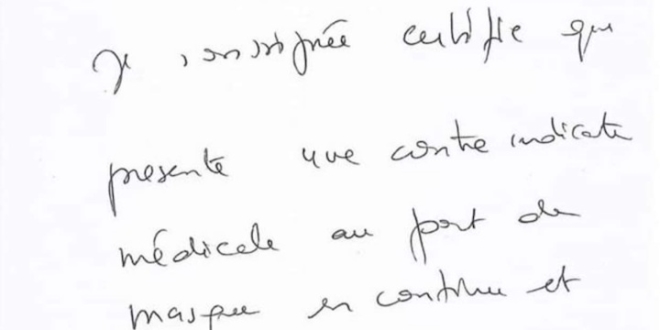 Je soussignée certifie que
presente une contre indicati
médicale au port de
masque en continu et